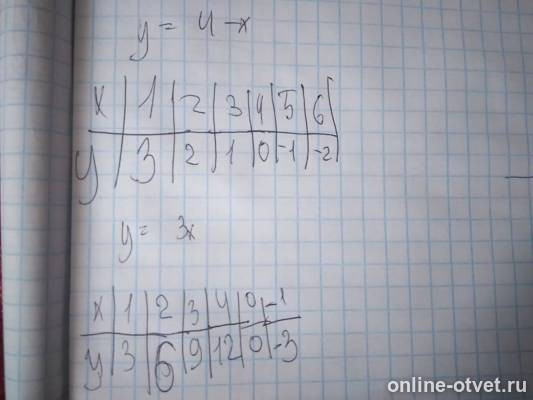 y = 4-x
x 1 2 3 4 5 6
y 3 2 1 0 -1 -2
y = 3x
x 1 2 3 4 0 -1
y 3 6 9 12 0 -3
online-otvet.ru